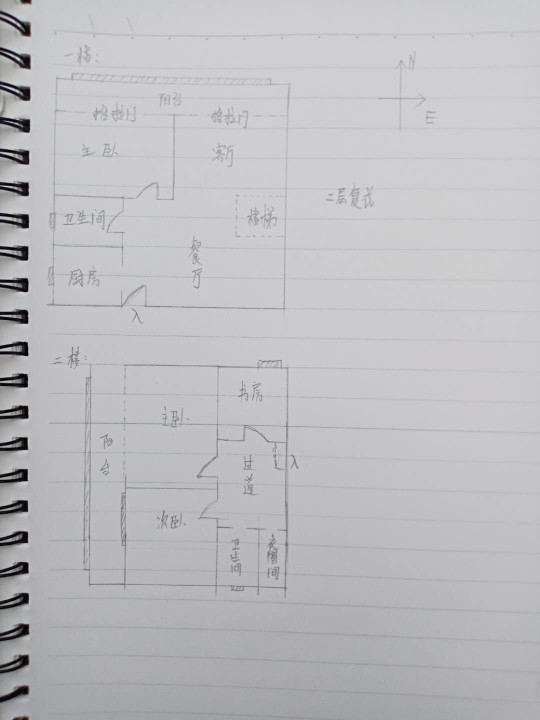 一楼:
N
阳台
推拉门
推拉门
E
主卧
客厅
二层复式
卫生间
楼梯
餐厅
厨房
入
二楼:
书房
主卧
阳台
过道
入
次卧
卫生间
衣帽间